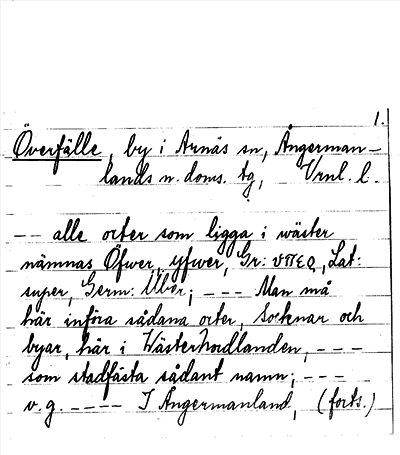 1.
Överfälle, by i Arnäs sn, Ångerman-
lands n. doms. tg, Vrnl. l.
-- alle orter som ligga i wäster
nämnas Öfwer, yfwer, Gr: υπερ, Lat:
super, Germ: Über; --- Man må
här införa sådana orter, Socknar och
byar, här i Wästerhordlanden, ---
som stadfästa sådant namn; ---
v.g. ---- I Ångermanland, (forts.)